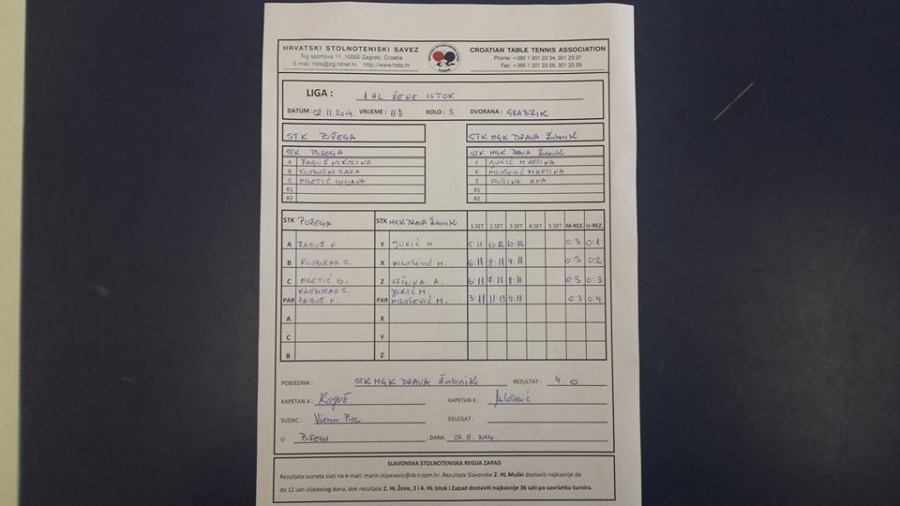 HRVATSKI STOLNOTENISKI SAVEZ
Trg sportova 11, 10000 Zagreb, Croatia
E-mail: hsts@zg.htnet.hr http://www.hsts.hr
CROATIAN TABLE TENNIS ASSOCIATION
Phone: +385 1 301 23 34, 301 23 27
Fax: +385 1 301 23 28, 301 23 29
LIGA : HL ŽENE ISTOK
DATUM: 02.11.2014 VRIJEME: KOLO: DVORANA: GRABRIK
STK POŽEGA
STK MGK DRAVA Žabnik
STK POŽEGA
A RAGUŽ NIKOLINA
B SARA
C MILETIĆ
R1
R2
STK MGK DRAVA Žabnik
Y JUKIĆ MARTINA
X MILOŠEVIĆ MARTINA
Z ANA
R1
R2
STK POŽEGA STK MGK DRAVA Žabnik 1.SET 2.SET 3.SET 4.SET 5.SET M-REZ. U-REZ.
A RAGUŽ N. Y JUKIĆ M. 5:11 10:12 10:12 0:3 0:1
B S. X MILOŠEVIĆ M. 6:11 8:11 4:11 0:3 0:2
C MILETIĆ Z A. 6:11 7:11 0:3 0:3
S. JUKIĆ M.
PAR RAGUŽ N. PAR MILOŠEVIĆ M. 3:11 11:13 0:3 0:4
A X
C Y
B Z
POBJEDNIK : STK MGK DRAVA Žabnik REZULTAT : 4 0
KAPETAN A : Raguž KAPETAN X : Milošević
SUDAC : DELEGAT :
U POŽEGI , DANA 02.11.2014.
SLAVONSKA STOLNOTENISKA REGIJA ZAPAD
Rezultate susreta slati na e-mail: marin.stipesevic@sb.t-com.hr. Rezultate Slavonske 2. HL Muški dostaviti najkasnije
do 12 sati slijedećeg dana, dok rezultate 2. HL Žene, 3 i 4. HL Istok i Zapad dostaviti najkasnije 36 sati po završetku turnira.